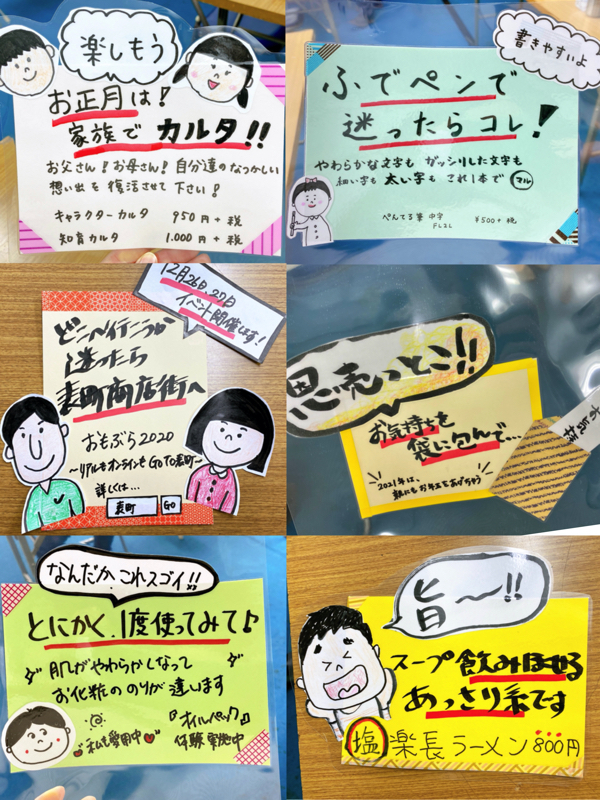 楽しもう
お正月は!
家族で カルタ!!
お父さん!お母さん!自分達のなつかしい
想い出を復活させて下さい!
キャラクターカルタ 950円+税
知育カルタ 1.000円+税
書きやすいよ
ふでペンで
迷ったらコレ!
やわらかな文字も ガッシリした文字も
細い字も 太い字も これ1本で マル
ぺんてる筆 中字 ¥500+税
FL2L
12月26日、27日
イベント開催します!
どこへ行こうか
迷ったら
表町商店街へ
おもぶら2020
〜リアルもオンラインもGOTO表町〜
詳しくは…
表町 GO
恩売っとこ!!
お気持ちを
袋に包んで…
2021年は、
親にもお年玉をあげちゃう
なんだか、これスゴイ!!
とにかく、1度使ってみて♪
肌がやわらかくなって
お化粧ののりが違います
私も愛用中
『オイルパック』
体験実施中
旨〜!!
スープ飲みほせる
あっさり系です
塩 楽長ラーメン 800円